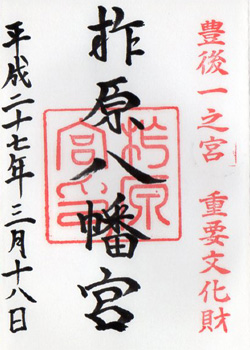 豊後一之宮 重要文化財
柞原八幡宮
柞原宮印
平成二十七年三月十八日